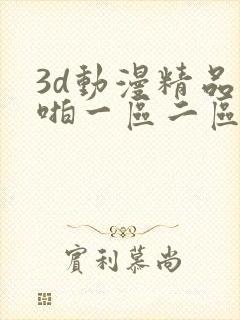 3d動漫精品
啪一區二區
實利慕尚